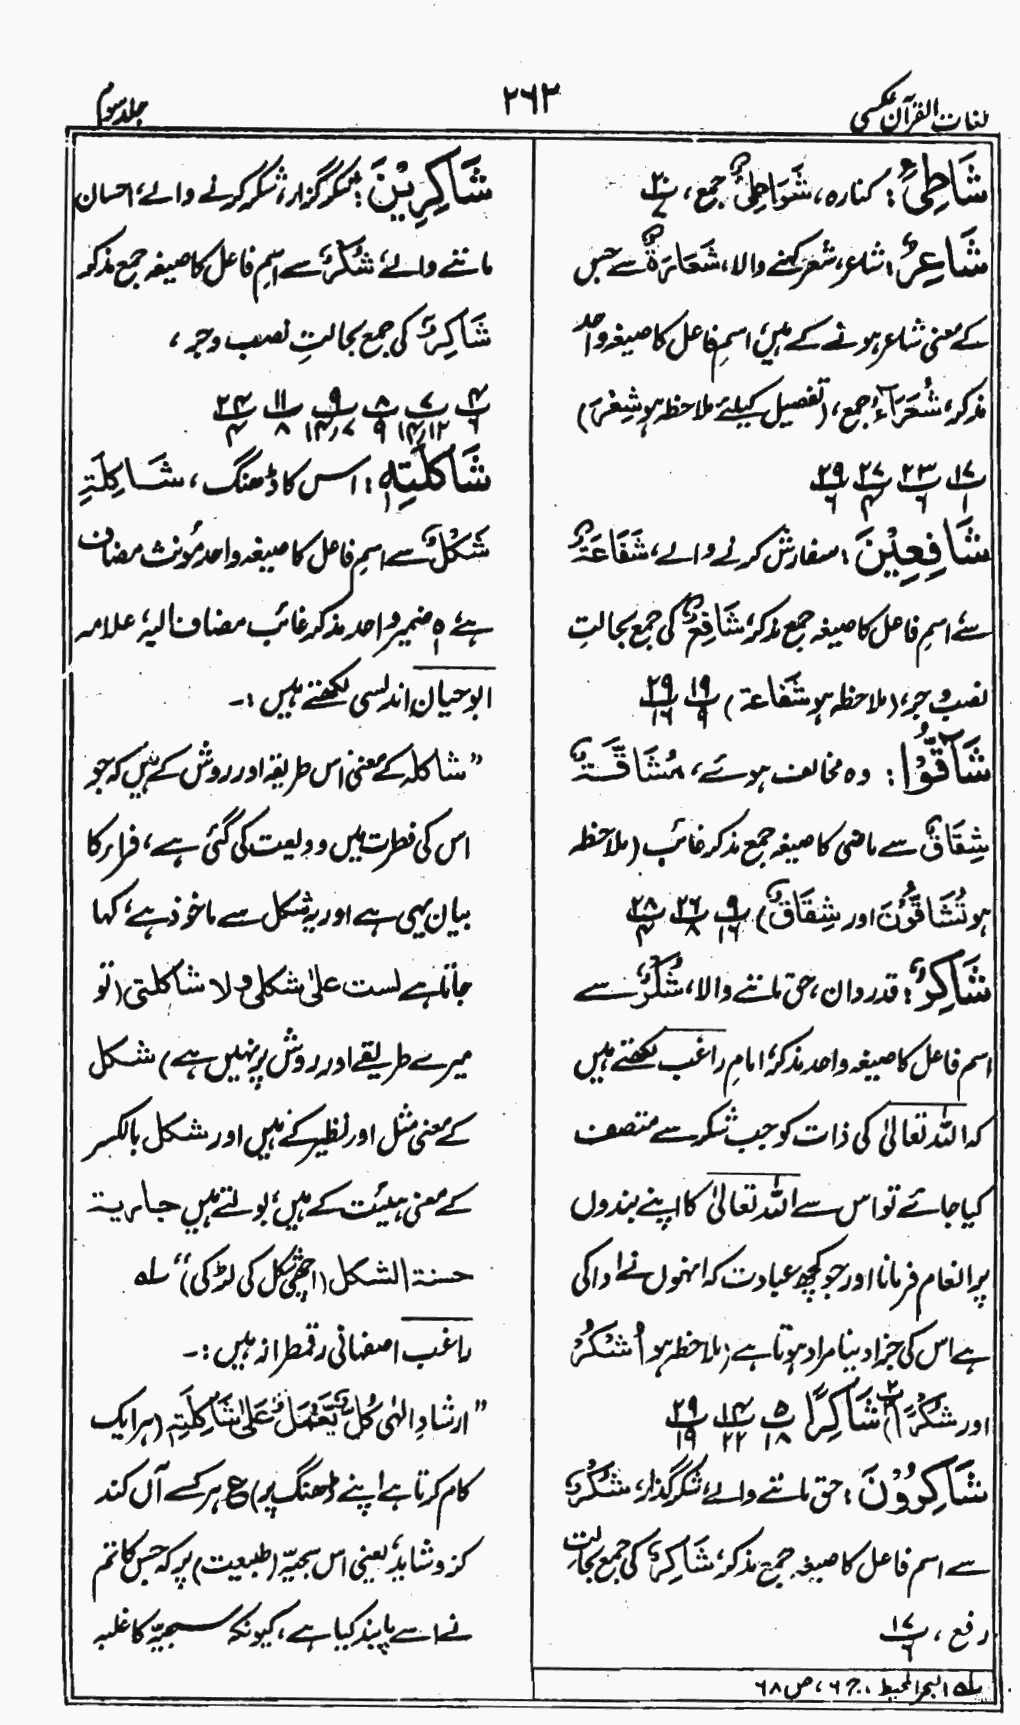 لغات القرآن عکسی
۲۶۳
جلد سوم
شَاطِئِ: کنارہ، شَوَاطِئُ جمع، پ۲۰/۷
شَاعِرٌ: شاعر، شعر کہنے والا، شَعَارَۃٌ سے جس
کے معنی شاعر ہونے کے ہیں، اسمِ فاعل کا صیغہ واحد
مذکر، شُعَرَآءُ جمع، (تفصیل کیلئے ملاحظہ ہو شِعْرَ)
۱۷/۱ ۲۳/۶ ۲۷/۴ ۲۹/۶
شَافِعِیْنَ: سفارش کرنے والے، شَفَاعَۃٌ
سے اسمِ فاعل کا صیغہ جمع مذکر، شَافِعٌ کی جمع بحالتِ
نصب و جر، (ملاحظہ ہو شَفَاعۃ) ۱۹/۹ ۲۹/۱۶
شَآقُّوْا: وہ مخالف ہوئے، مُشَاقَّۃٌ
شِقَاقٌ سے ماضی کا صیغہ جمع مذکر غائب (ملاحظہ
ہو تُشَاقُّوْنَ اور شِقَاقٌ) ۹/۱۶ ۲۶/۸ ۲۸/۴
شَاکِرٌ: قدردان، حق ماننے والا، شُکْرٌ سے
اسم فاعل کا صیغہ واحد مذکر، امام راغب لکھتے ہیں
کہ اللہ تعالیٰ کی ذات کو جب شکر سے متصف
کیا جائے تو اس سے اللہ تعالیٰ کا اپنے بندوں
پر انعام فرمانا اور جو کچھ عبادت کہ انہوں نے ادا کی
ہے اس کی جزا دینا مراد ہوتا ہے (ملاحظہ ہو اُشْکُرْ
اور شُکْرًا) پ۲ شَاکِرًا ۵/۱۸ ۱۴/۲۲ ۲۹/۱۹
شَاکِرُوْنَ: حق ماننے والے، شکر گذار، شُکْرٌ
سے اسم فاعل کا صیغہ جمع مذکر، شَاکِرٌ کی جمع بحالت
رفع، ۱۷/۶
شَاکِرِیْنَ: شکر گزار، شکر کرنے والے، احسان
ماننے والے، شُکْرٌ سے اسمِ فاعل کا صیغہ جمع مذکر
شَاکِرٌ کی جمع بحالتِ نصب و جر،
۴/۶ ۷/۱۴٫۱۲ ۸/۹ ۹/۱۴٫۷ ۱۱/۸ ۲۴/۴
شَاکِلَتِہٖ: اس کا ڈھنگ، شَاکِلَۃِ
شَکْلٌ سے اسمِ فاعل کا صیغہ واحد مؤنث مضاف
ہے ہٖ ضمیر واحد مذکر غائب مضاف الیہ، علامہ
ابو حیان اندلسی لکھتے ہیں :۔
”شاکلہ کے معنی اس طریقہ اور روش کے ہیں کہ جو
اس کی فطرت میں ودیعت کی گئی ہے، فراء کا
بیان یہی ہے اور یہ شکل سے ماخوذ ہے، کہا
جاتا ہے لست علیٰ شکلی و لا شاکلتی (تو
میرے طریقے اور روش پر نہیں ہے) شکل
کے معنی مثل اور نظیر کے ہیں اور شکل بالکسر
کے معنی ہیئت کے ہیں، بولتے ہیں جاریۃ
حسنۃ الشکل (اچھی شکل کی لڑکی)“ ؎۱
راغب اصفہانی رقمطراز ہیں :۔
”ارشادِ الٰہی کُلٌّ یَّعْمَلُ عَلیٰ شَاکِلَتِہٖ (ہر ایک
کام کرتا ہے اپنے ڈھنگ پر) ع ہر کسے آں کند
کزو شاید، یعنی اس سجیّہ (طبیعت) پر کہ جس کا تم
نے اسے پابند کیا ہے، کیونکہ سجیّہ کا غلبہ
؎۱ البحر المحیط، ج ۶، ص ۶۸